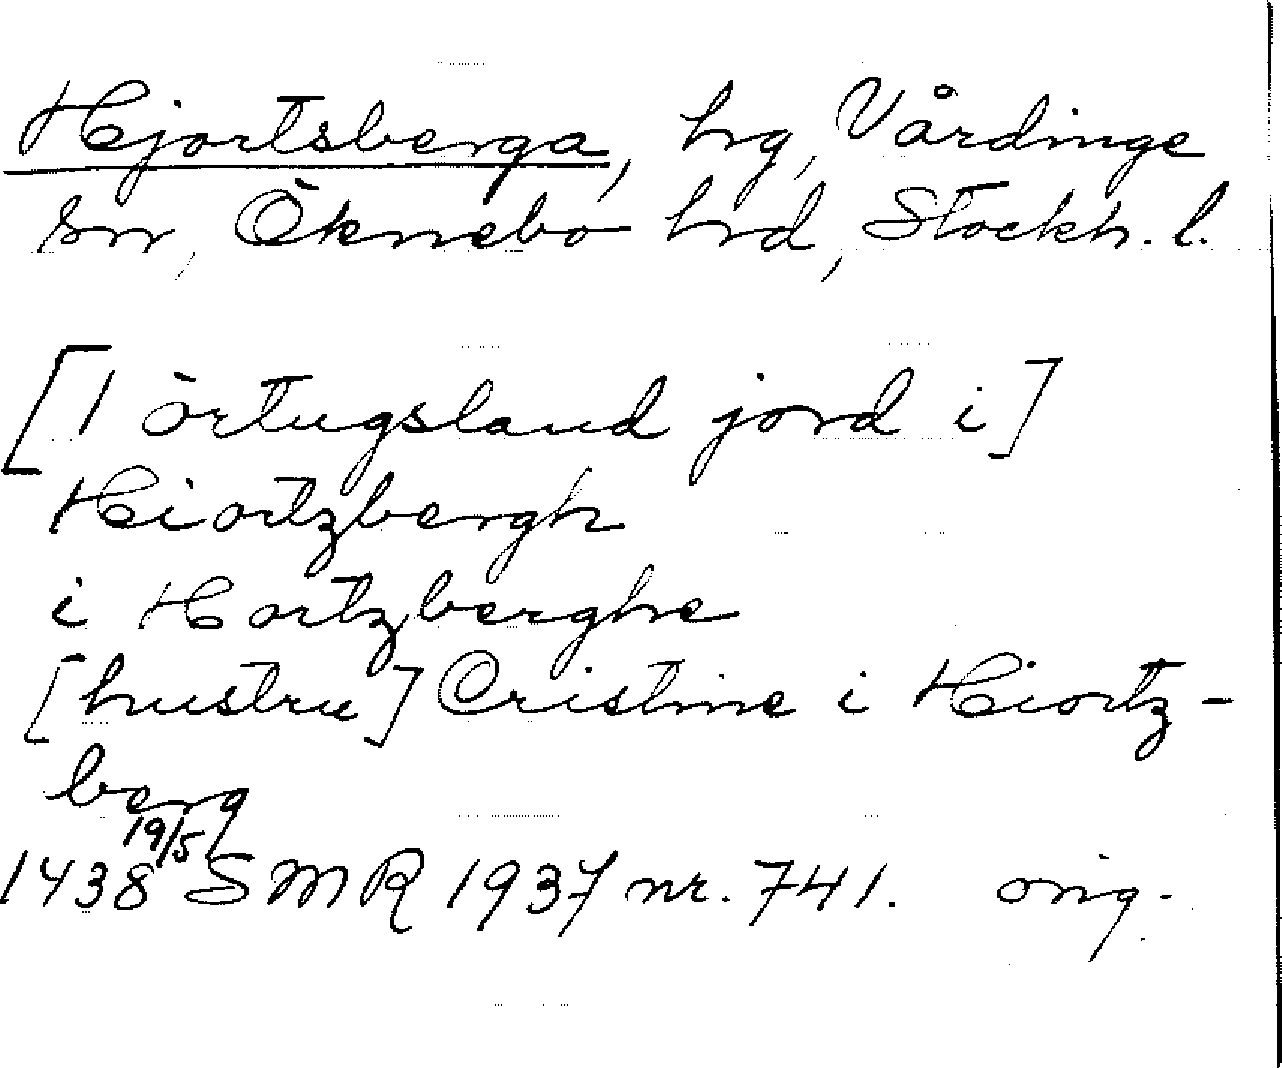 Hjortsberga, hg, Vårdinge
sn, Öknebo hrd, Stockh. l.
[1 örtugsland jord i]
Hiortzbergh
i Hortzberghe
[hustru] Cristine i Hiortz-
berg
1438 19/5 SMR 1937 nr. 741. orig.